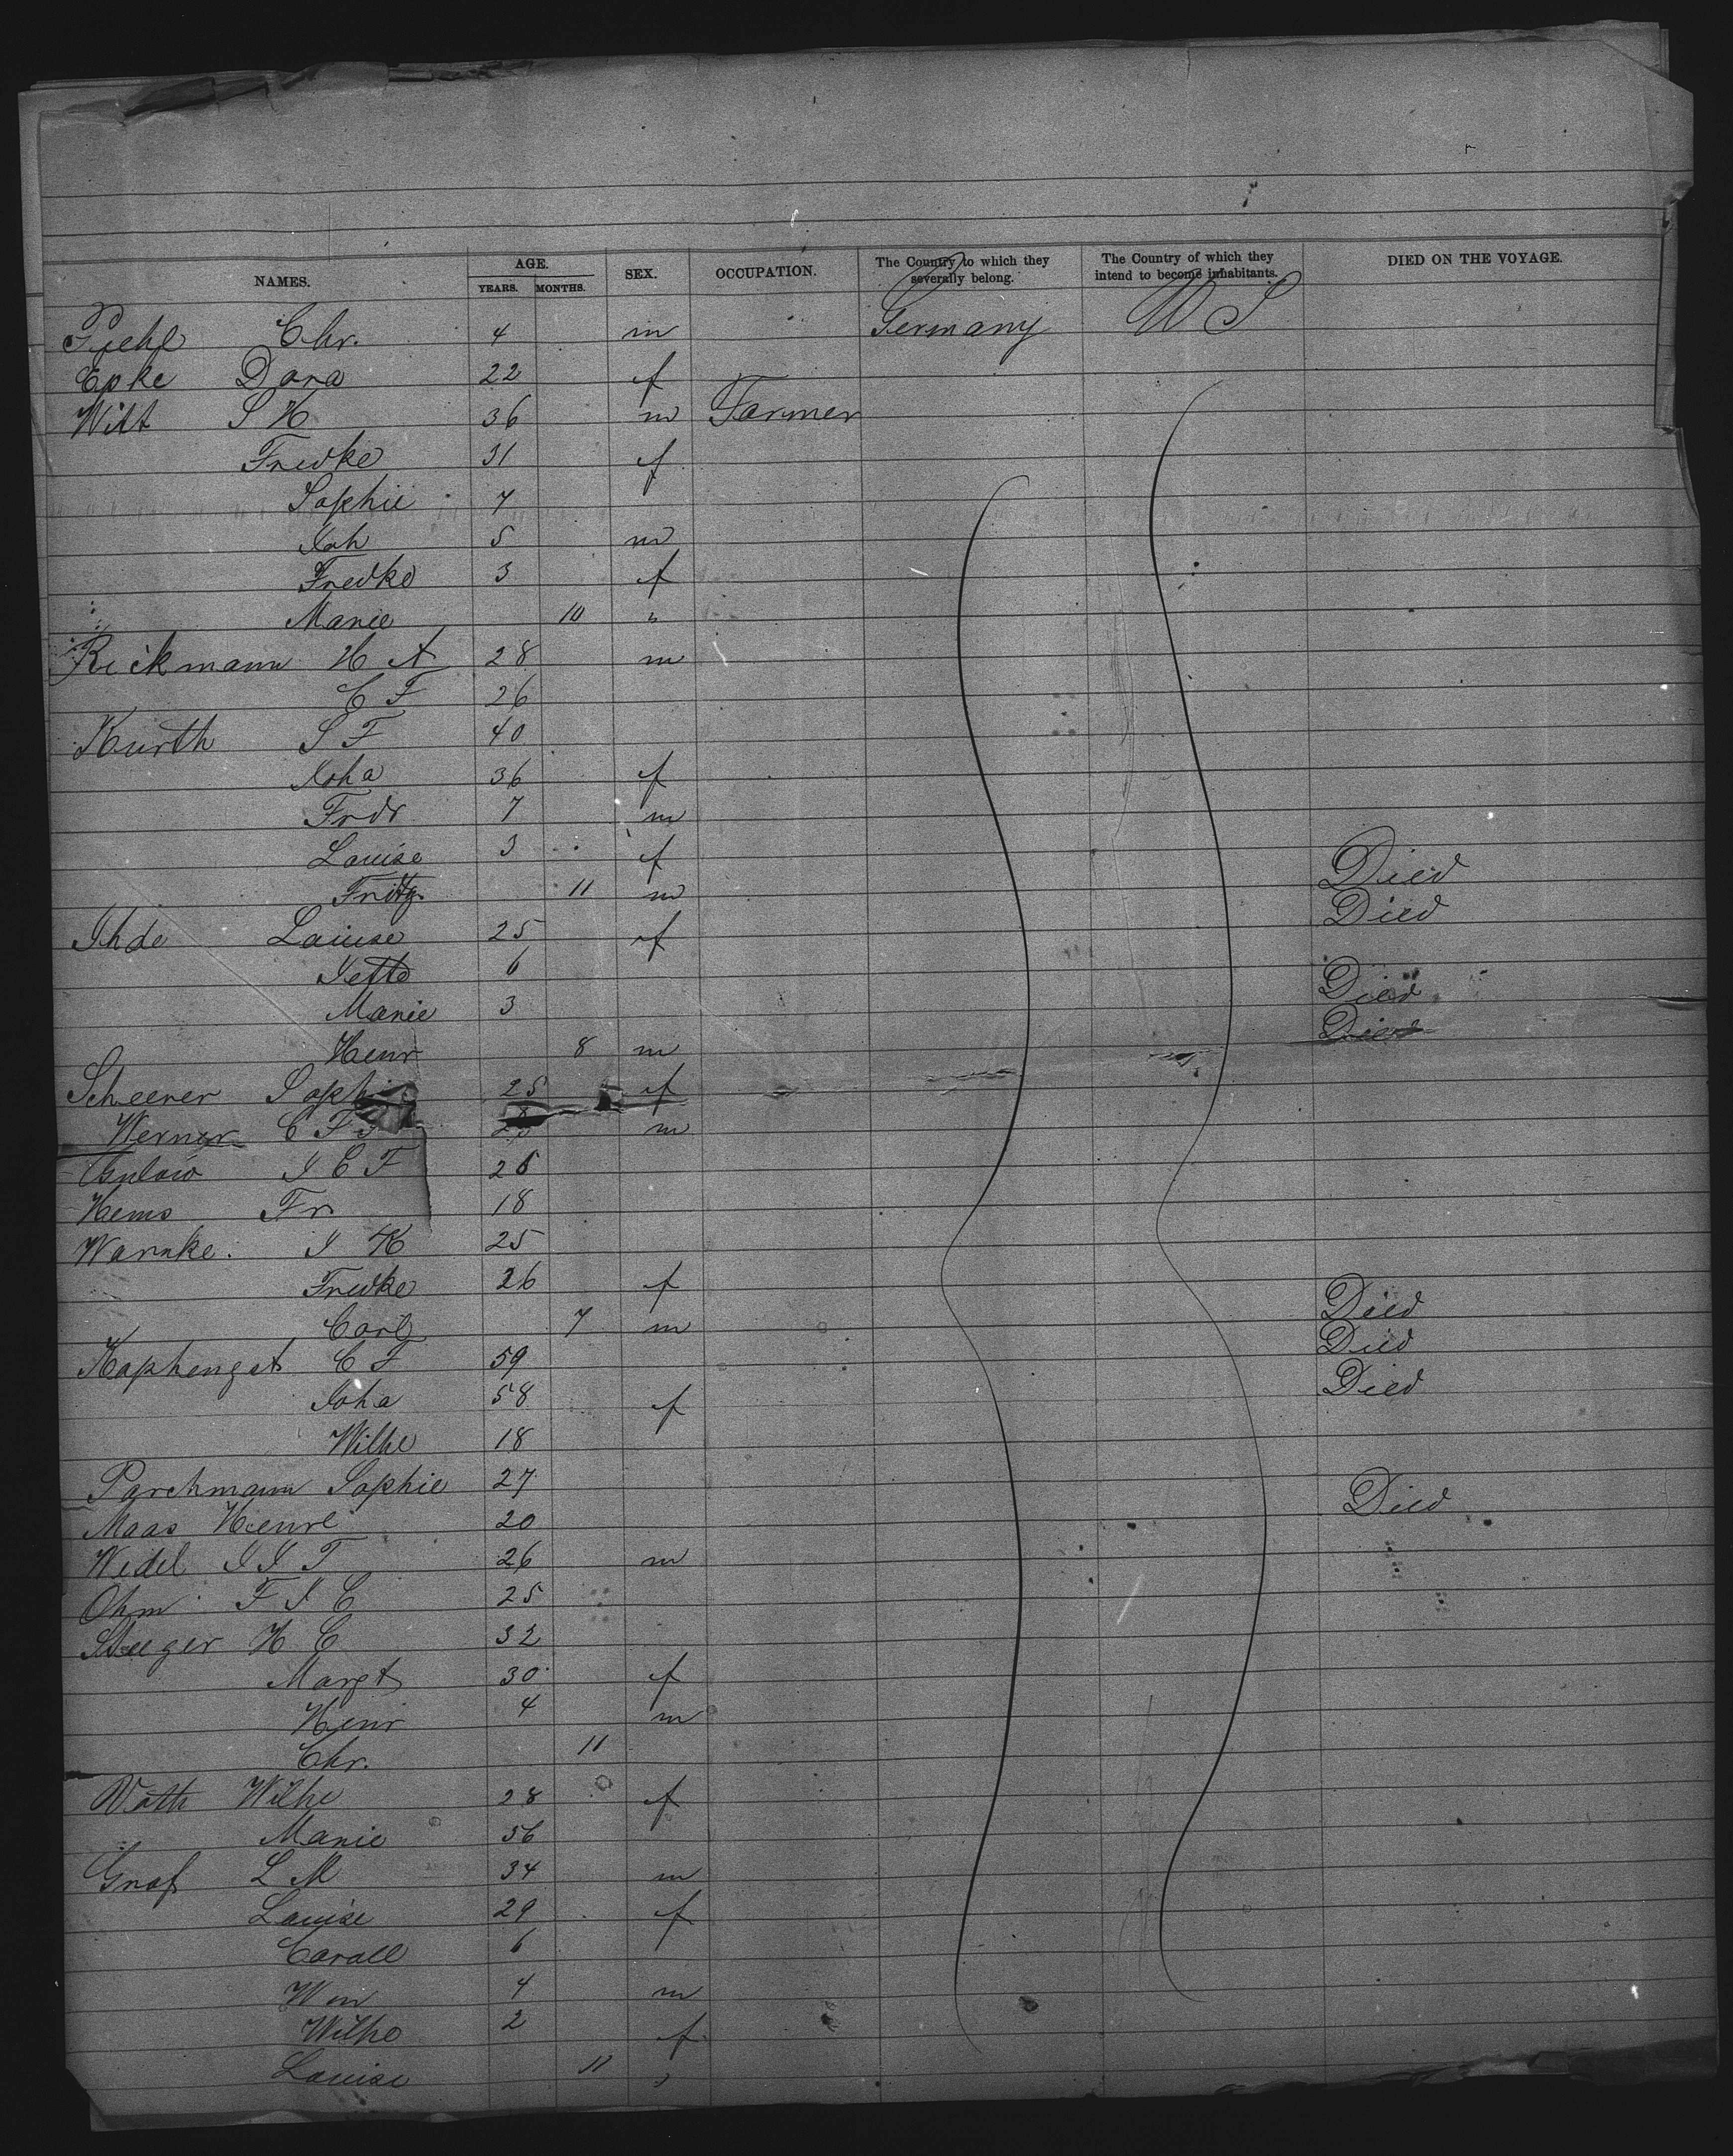 NAMES. AGE. YEARS. MONTHS. SEX. OCCUPATION. The Country to which they severally belong. The Country of which they intend to become inhabitants. DIED ON THE VOYAGE.
Piehl Chr. 4 m Germany U S
Epke Dora 22 f
Witt J H 36 m Farmer
Fredke 31 f
Sophie 7
Joh 5 m
Fredke 3 f
Marie 10 "
Rickmann H A 28 m
C F 26
Kurth J F 40
Joha 36 f
Frdr 7 m
Louise 3 f Died
Fritz 11 m Died
Ihde Louise 25 f
Jette 6 Died
Marie 3 Died
Henr 8 m
Scheerer Sophie 25 f
Werner C F J m
Gulow J C F 26
Hems Fr 18
Warnke. J H 25
Fredke 26 f Died
Carl 7 m Died
Kaphengst C F 59 Died
Joha 58 f
Wilhe 18
Parchmann Sophie 27 Died
Maas Henre 20
Wedel J J T 26 m
Ohm F J C 25
Steeger H C 32
Margt 30 f
Henr 4 m
Chr. 11
Voth Wilhe 28 f
Marie 56
Graf L M 34 m
Louise 29 f
Caroll 6
Wm 4 m
Wilhe 2 f
Louise 11 "